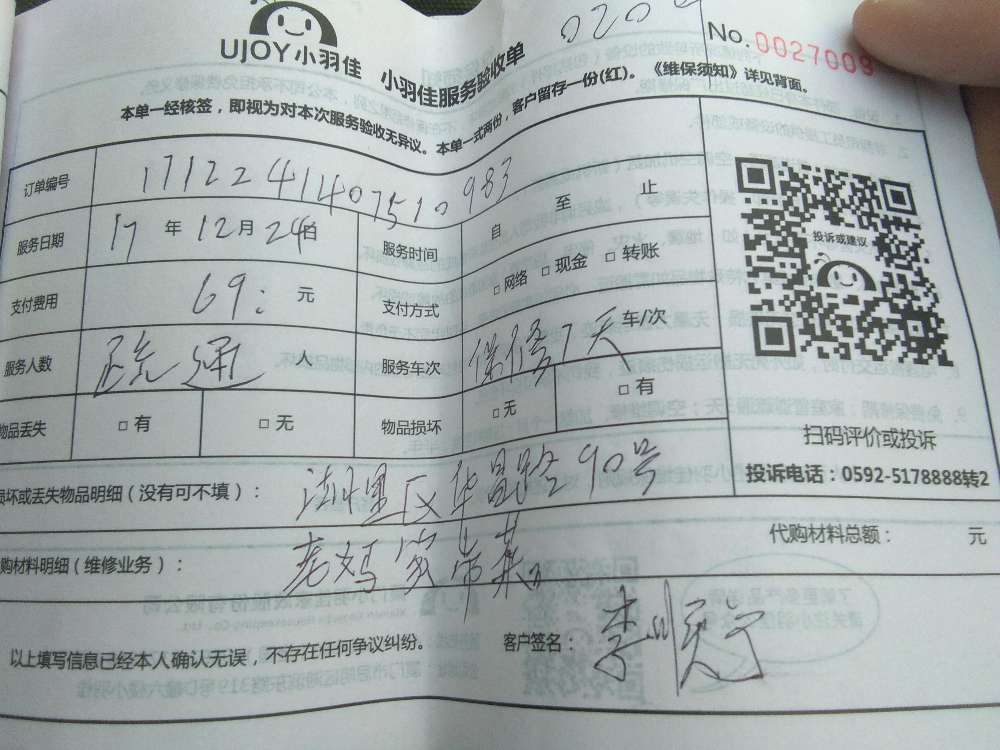 0209
UJOY小羽佳 小羽佳服务验收单 No.0027009
本单一经核签，即视为对本次服务验收无异议。本单一式两份，客户留存一份(红)。《维保须知》详见背面。
订单编号 1712241407510983
服务日期 17年12月24日 服务时间 自 至 止
支付费用 69: 元 支付方式 □网络 □现金 □转账
服务人数 疏通 人 服务车次 保修7天 车/次
物品丢失 □有 □无 物品损坏 □无 □有
投诉或建议
扫码评价或投诉
投诉电话：0592-5178888转2
损坏或丢失物品明细（没有可不填）： 湖里区华昌路90号
代购材料总额： 元
购材料明细（维修业务）： 老妈家常菜
以上填写信息已经本人确认无误，不存在任何争议纠纷。 客户签名：